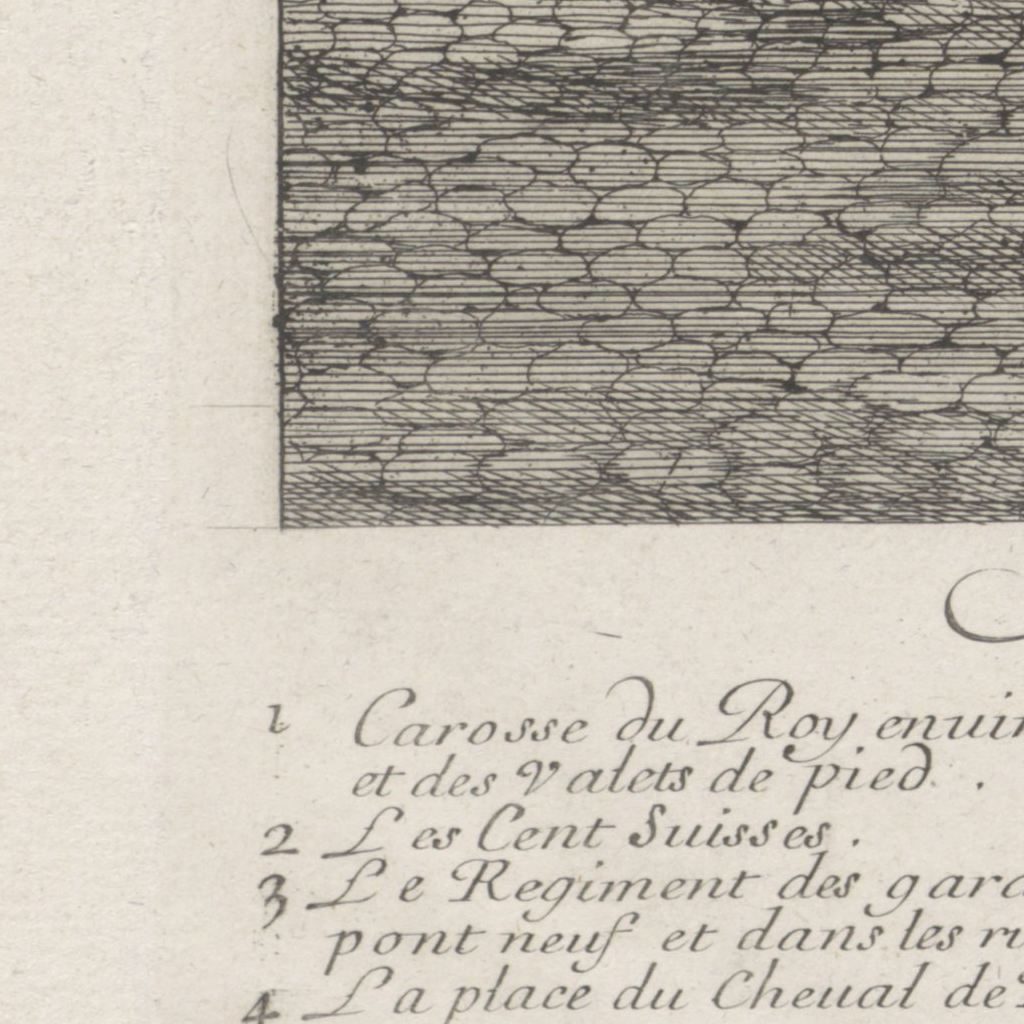 1 Carosse du Roy enuir
et des Valets de pied .
2 Les Cent Suisses .
3 Le Regiment des gard
pont neuf et dans les ru
4 La place du Cheual de